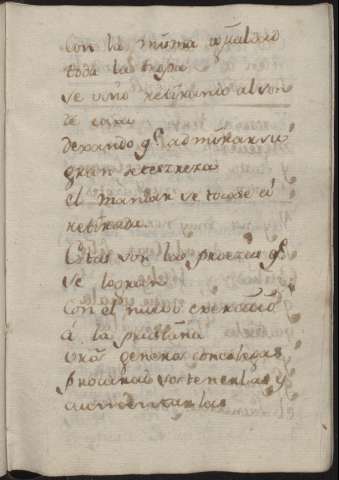 Con la misma igualdad
toda la tropa
se vino retirando al son
de caxa
dexando q.e admirar su
gran destreza
el mandar se toque á
retirada
Estas son las proezas q.e
se logran
Con el nuevo exercicio
á la prusiana
Vra.
procuran sostenerlas y
aumentarlas